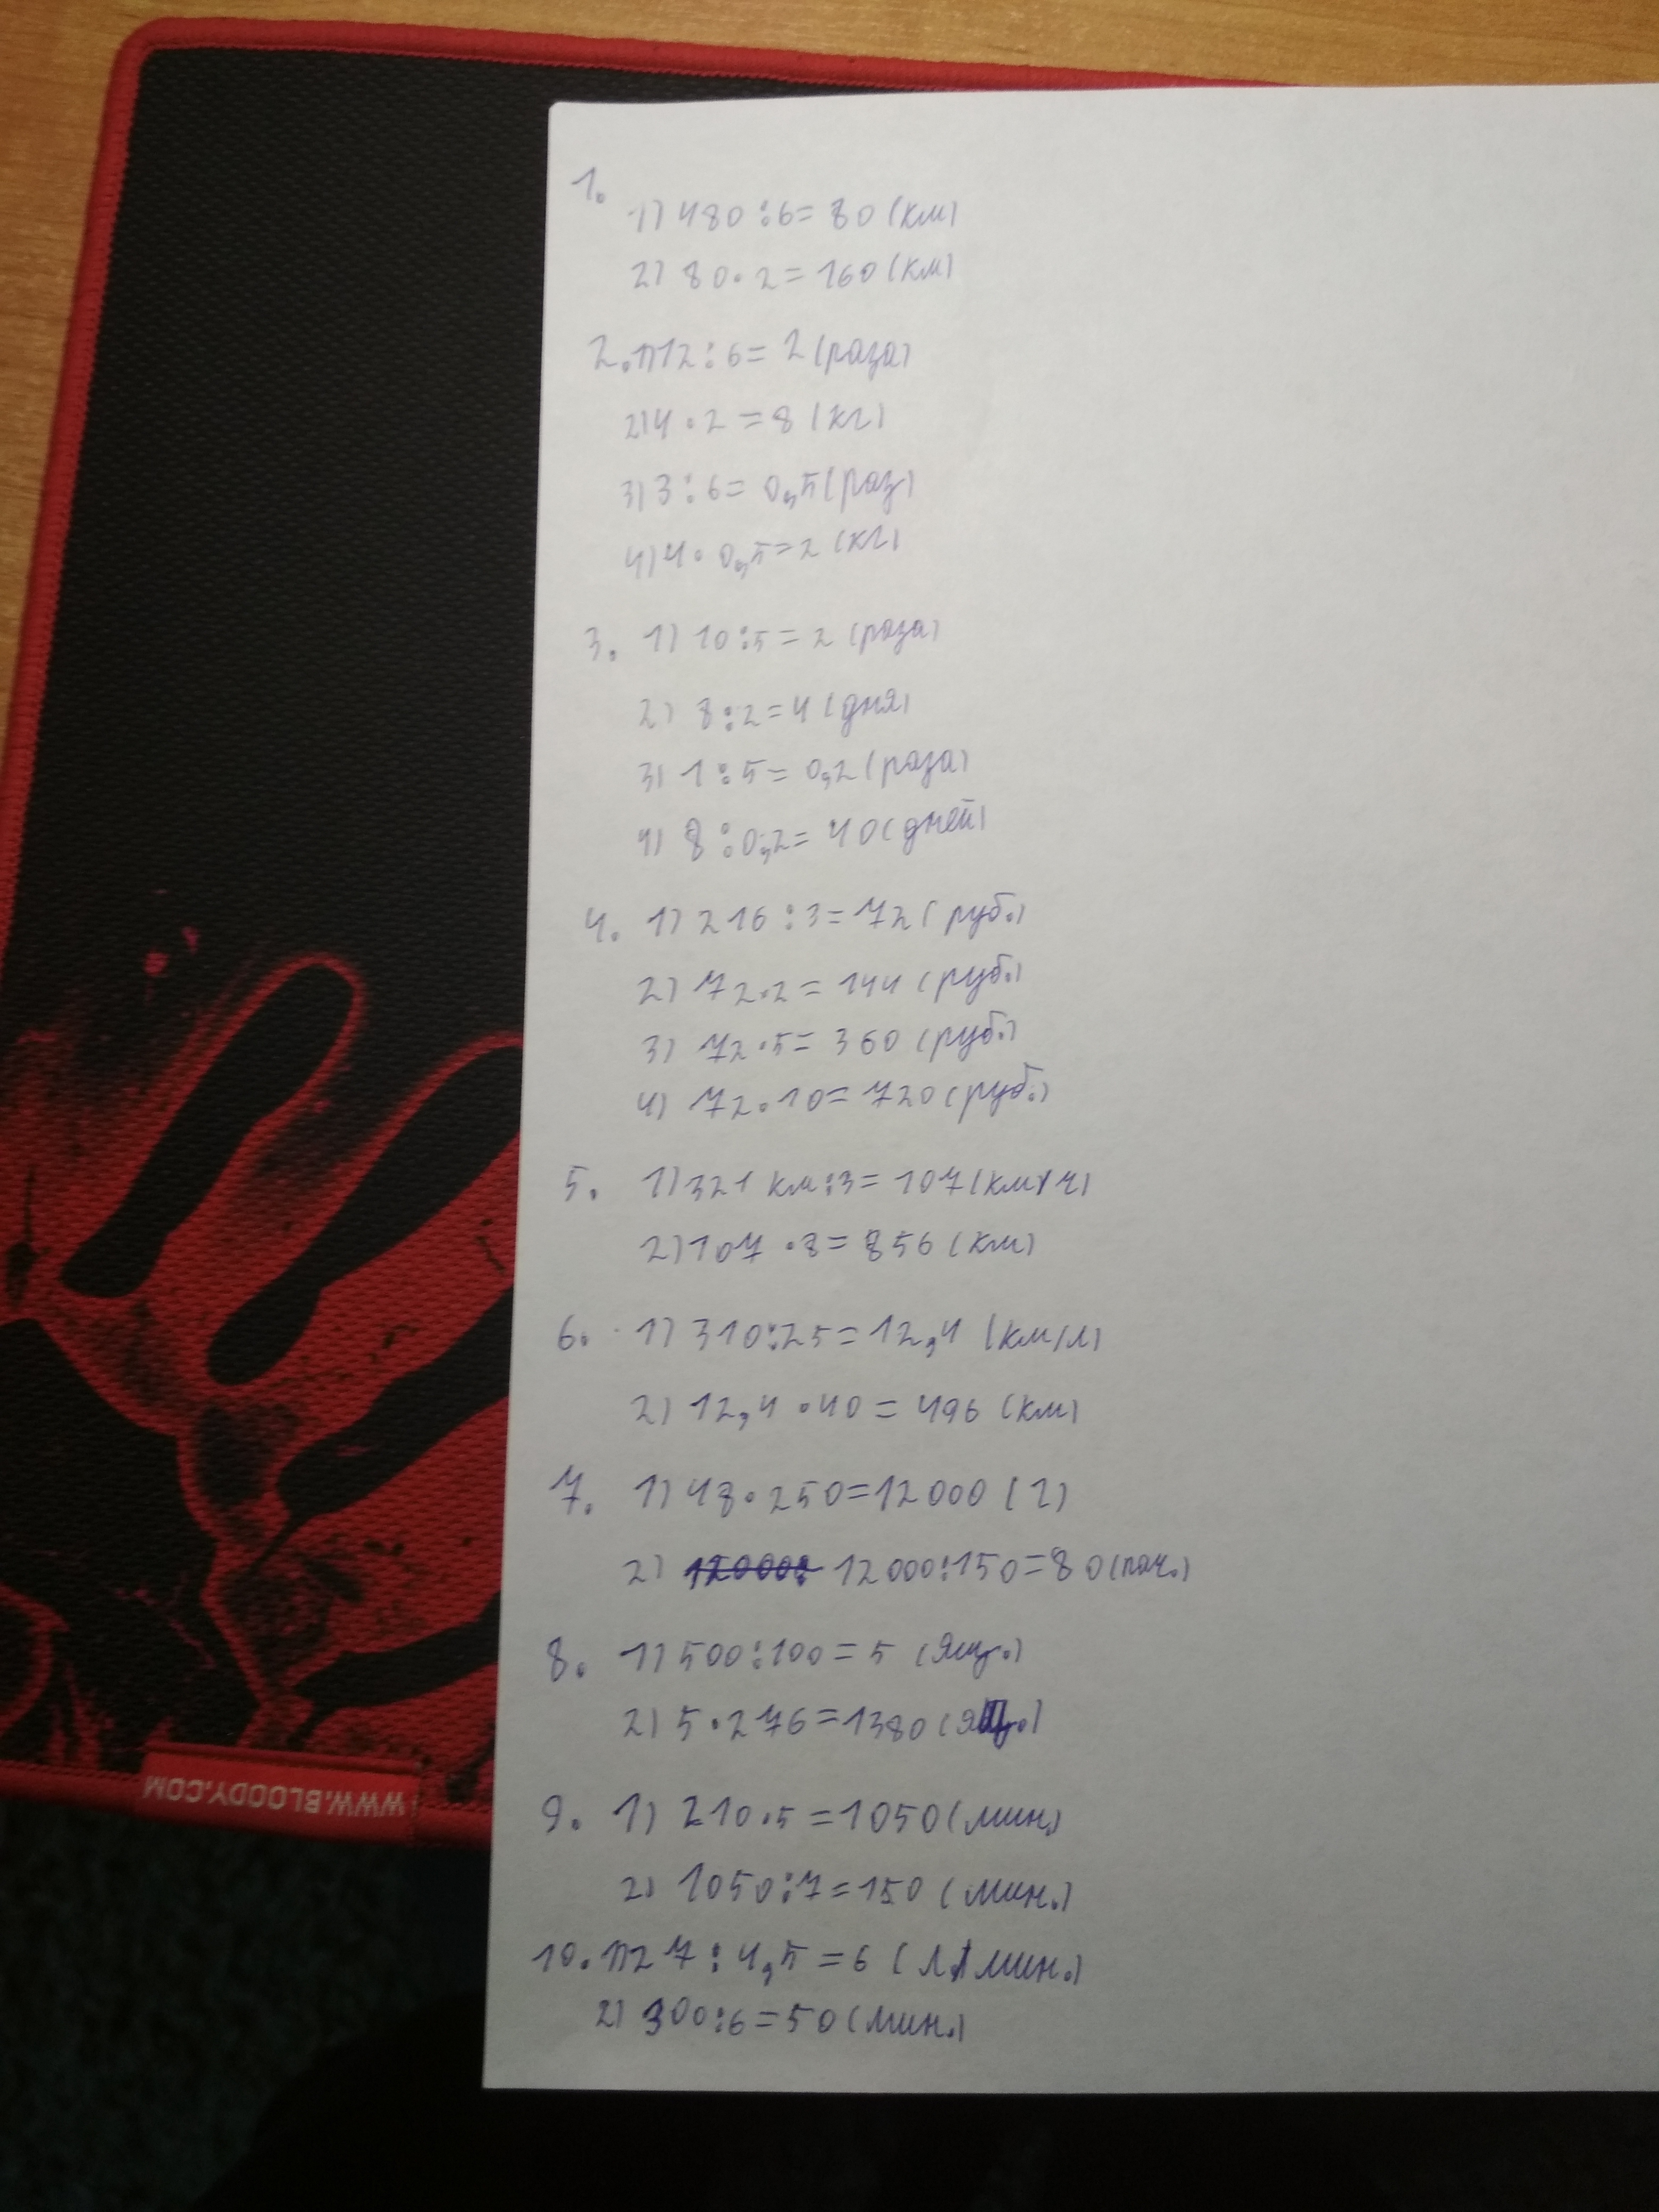 1.
1) 480 : 6 = 80 (км)
2) 80 · 2 = 160 (км)
2. 1) 12 : 6 = 2 (раза)
2) 4 · 2 = 8 (кг)
3) 3 : 6 = 0,5 (раз)
4) 4 · 0,5 = 2 (кг)
3. 1) 10 : 5 = 2 (раза)
2) 8 : 2 = 4 (дня)
3) 1 : 5 = 0,2 (раза)
4) 8 : 0,2 = 40 (дней)
4. 1) 216 : 3 = 72 (руб.)
2) 72 · 2 = 144 (руб.)
3) 72 · 5 = 360 (руб.)
4) 72 · 10 = 720 (руб.)
5. 1) 321 км : 3 = 107 (км/ч)
2) 107 · 8 = 856 (км)
6. 1) 310 : 25 = 12,4 (км/л)
2) 12,4 · 40 = 496 (км)
7. 1) 48 · 250 = 12000 (г)
2) 12000: 12000 : 150 = 80 (пач.)
8. 1) 500 : 100 = 5 (ящ.)
2) 5 · 276 = 1380 (ящ.)
9. 1) 210 · 5 = 1050 (мин.)
2) 1050 : 7 = 150 (мин.)
10. 1) 27 : 4,5 = 6 (л/мин.)
2) 300 : 6 = 50 (мин.)
WWW.BLOODY.COM